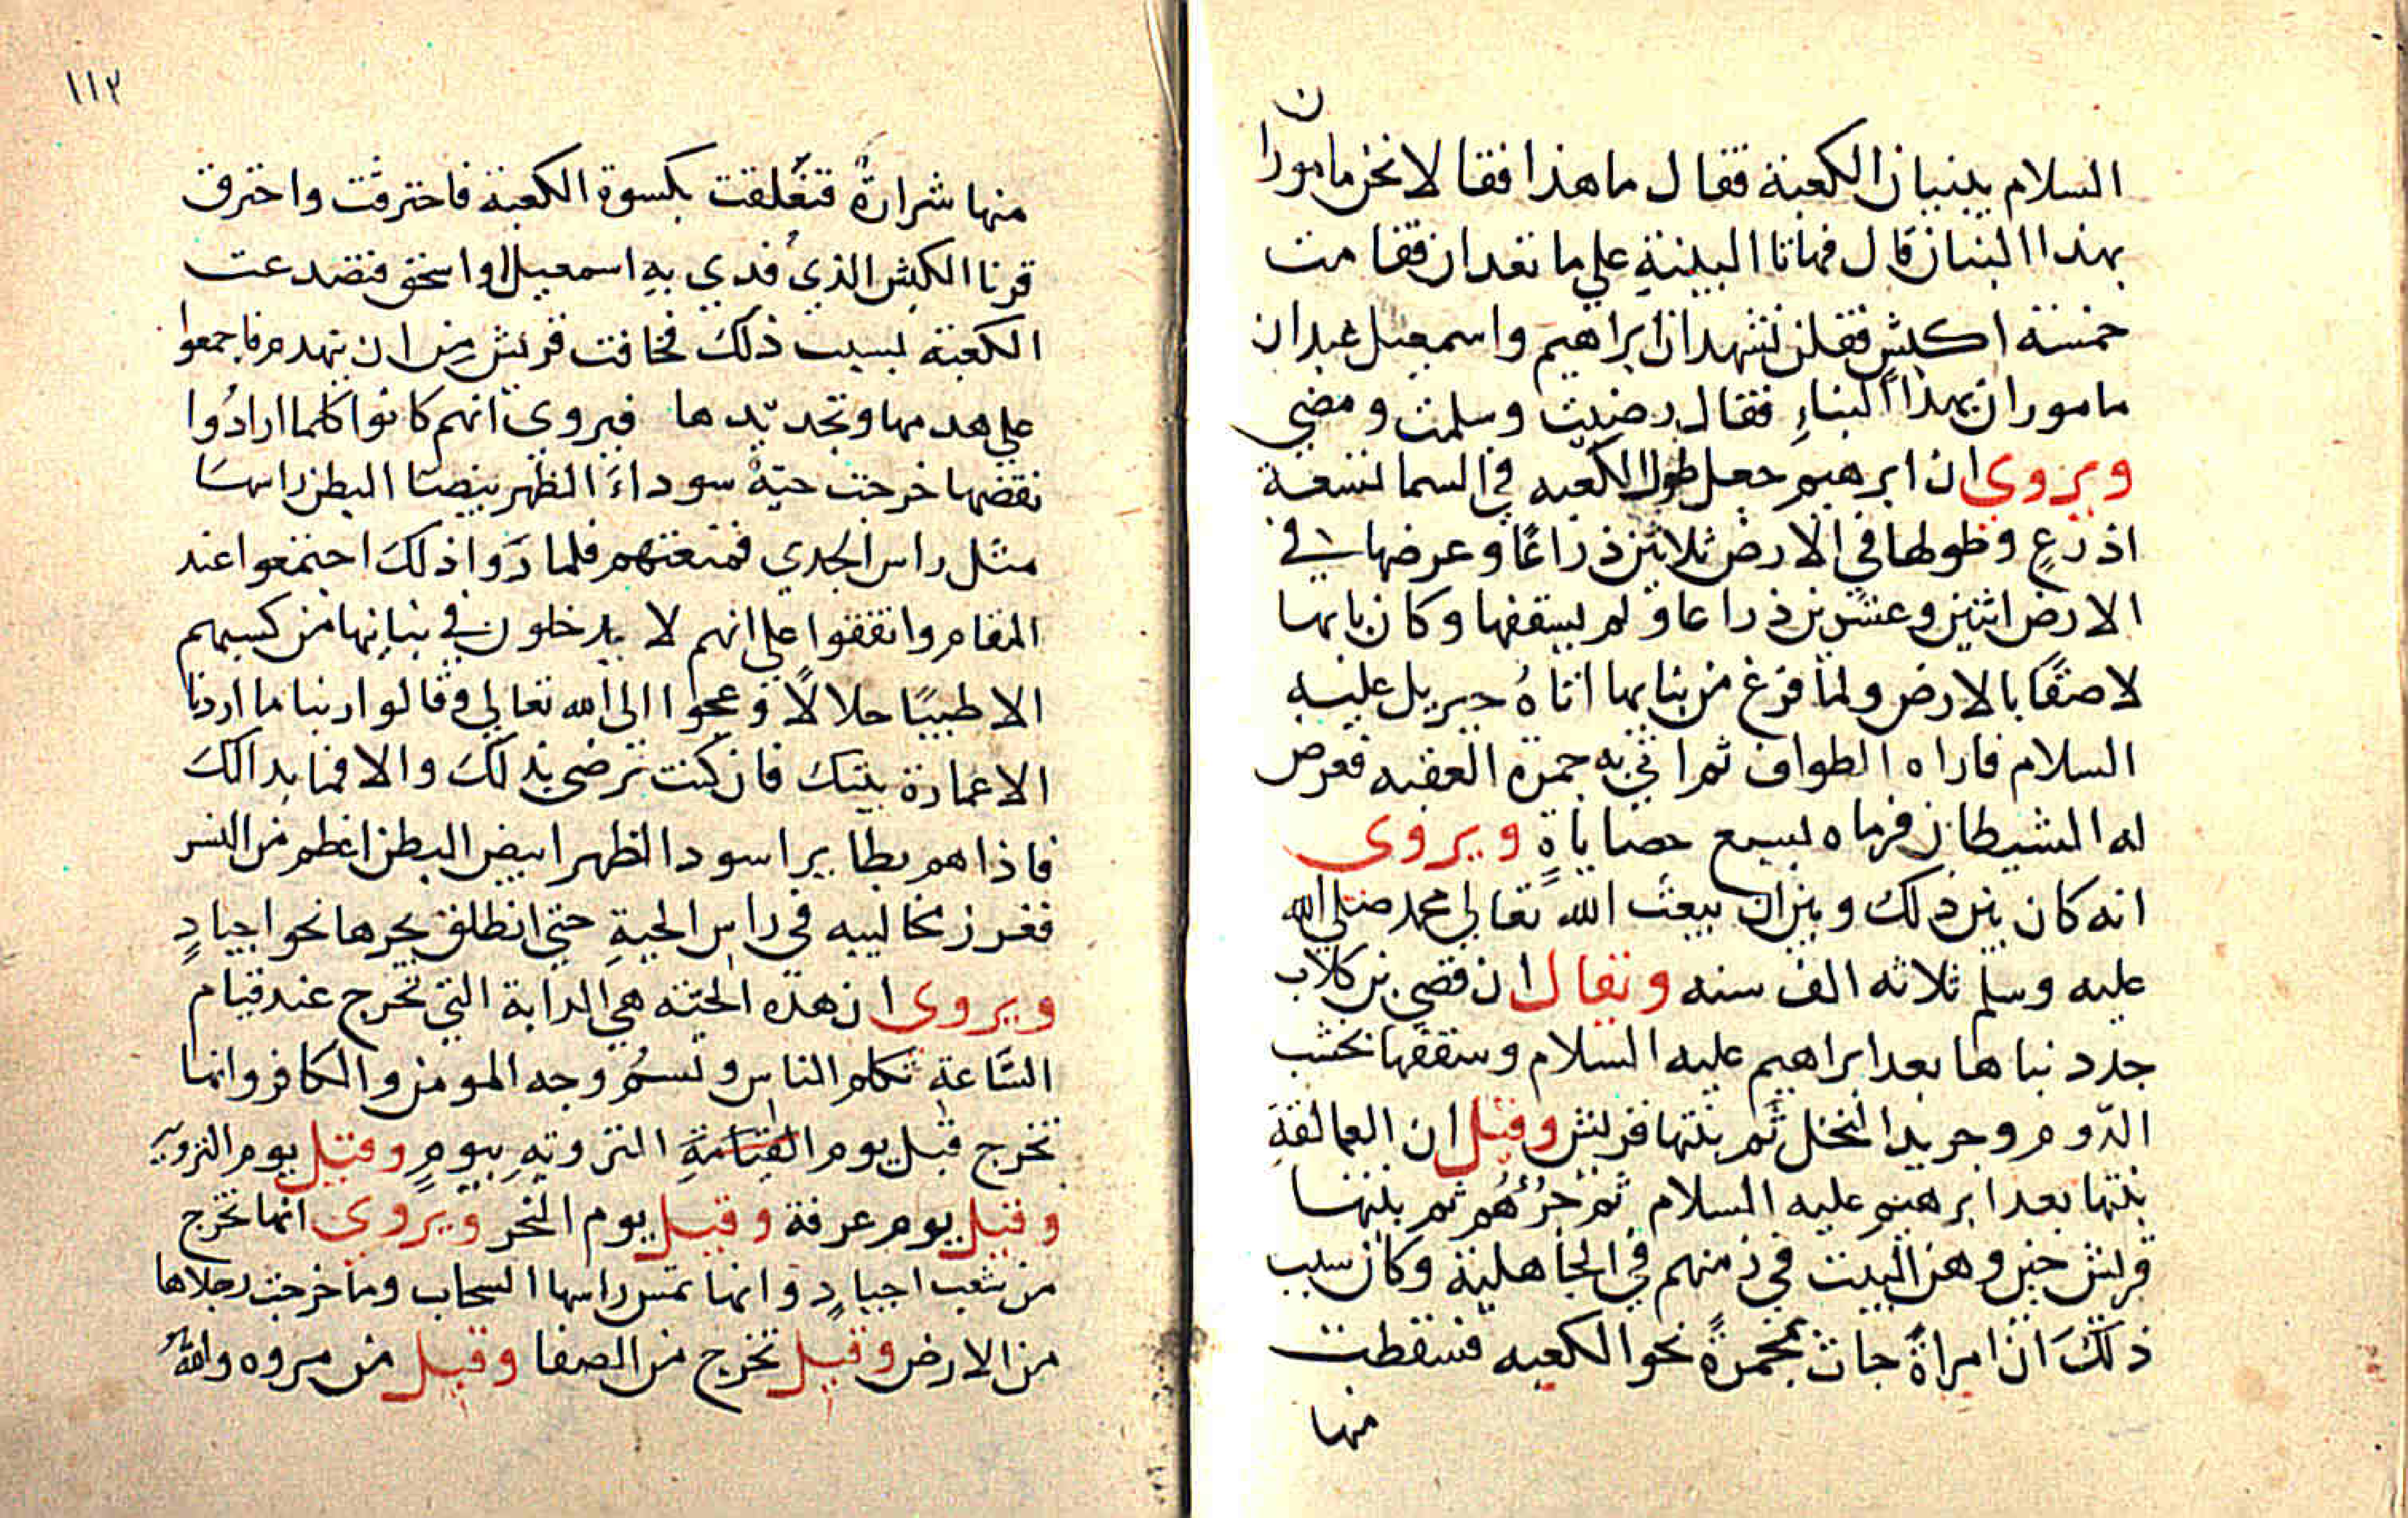 السلام يبنيان الكعبة فقال ما هذا فقالا نحن ماموران
بهذا البنيان قال فهاتا البينة علي ما تقدان فقامت
خمسة اكبش فقلن نشهد ان ابراهيم واسمعيل عبدان
ماموران بهذا البناءِ فقال رضيت وسلمت ومضي
ويروى ان ابرهيم جعل طول الكعبه في السما تسعة
اذرعٍ وطولها في الارض ثلاثين ذراعًا وعرضها في
الارض اثنين وعشرين ذراعا ولم يسقفها وكان بابها
لاصقًا بالارض ولما فرغ من بنايها اتاهُ جبريل عليه
السلام فاراه الطواف ثم اتي به جمرة العقبه فعرض
له الشيطان فرماه بسبع حصاياةٍ ويروى
انه كان بين ذلك وبين ان يبعث الله تعالي محمد صلي الله
عليه وسلم ثلاثه الف سنه ويقال ان قصي بن كلاب
جدد بناها بعد ابراهيم عليه السلام وسقفها بخشب
الدّوم وجريد النخل ثم بنتها قريش وقيل ان العمالقة
بنتها بعد ابرهيم عليه السلام ثم جُرْهُم ثم بنتها
قريش حين وهن البيت في زمنهم في الجاهلية وكان سبب
ذلك ان امراةً جات بمجمرةً نحو الكعبه فسقطت
منها
١١٢
منها شرارةٌ فتعلقت بكسوة الكعبة فاحترقت واحترق
قرنا الكبش الذي فُدي به اسمعيل او اسحق فتصدعت
الكعبة بسبب ذلك فخافت قريش من ان يتهدم فاجمعوا
علي هدمها وتجديدها فيروي انهم كانوا كلما ارادُوا
نقضها خرجت حيّة سوداءَ الظهر بيضا البطن راسها
مثل راس الجدي فمنعتهم فلما رَوا ذلك اجتمعوا عند
المقام واتفقوا علي انهم لا يدخلون في بنيانها من كسبهم
الا طيبًا حلالًا وعجوا الى الله تعالي وقالوا ربنا ما اردنا
الا عمارة بيتك فان كنت ترضى بذلك والا فما بدالك
فاذا هم بطاير اسود الظهر ابيض البطن اعظم من النسر
فغرز مخاليبه في راس الحية حتي انطلق يجرها نحو اجيادٍ
ويروى ان هذه الحيّة هي الدابة التي تخرج عند قيام
السَّاعةِ تكلم الناس وتسُم وجه المومن والكافر وانها
تخرج قبل يوم القيامةِ الترويةِ بيومٍ وقيل يوم التروية
وقيل يوم عرفة وقيل يوم النحر ويروي انها تخرج
من شعب اجيادٍ وانها تمس راسها السحاب وما خرجت رجلاها
من الارض وقيل تخرج من الصفا وقيل من مروه واللهُ